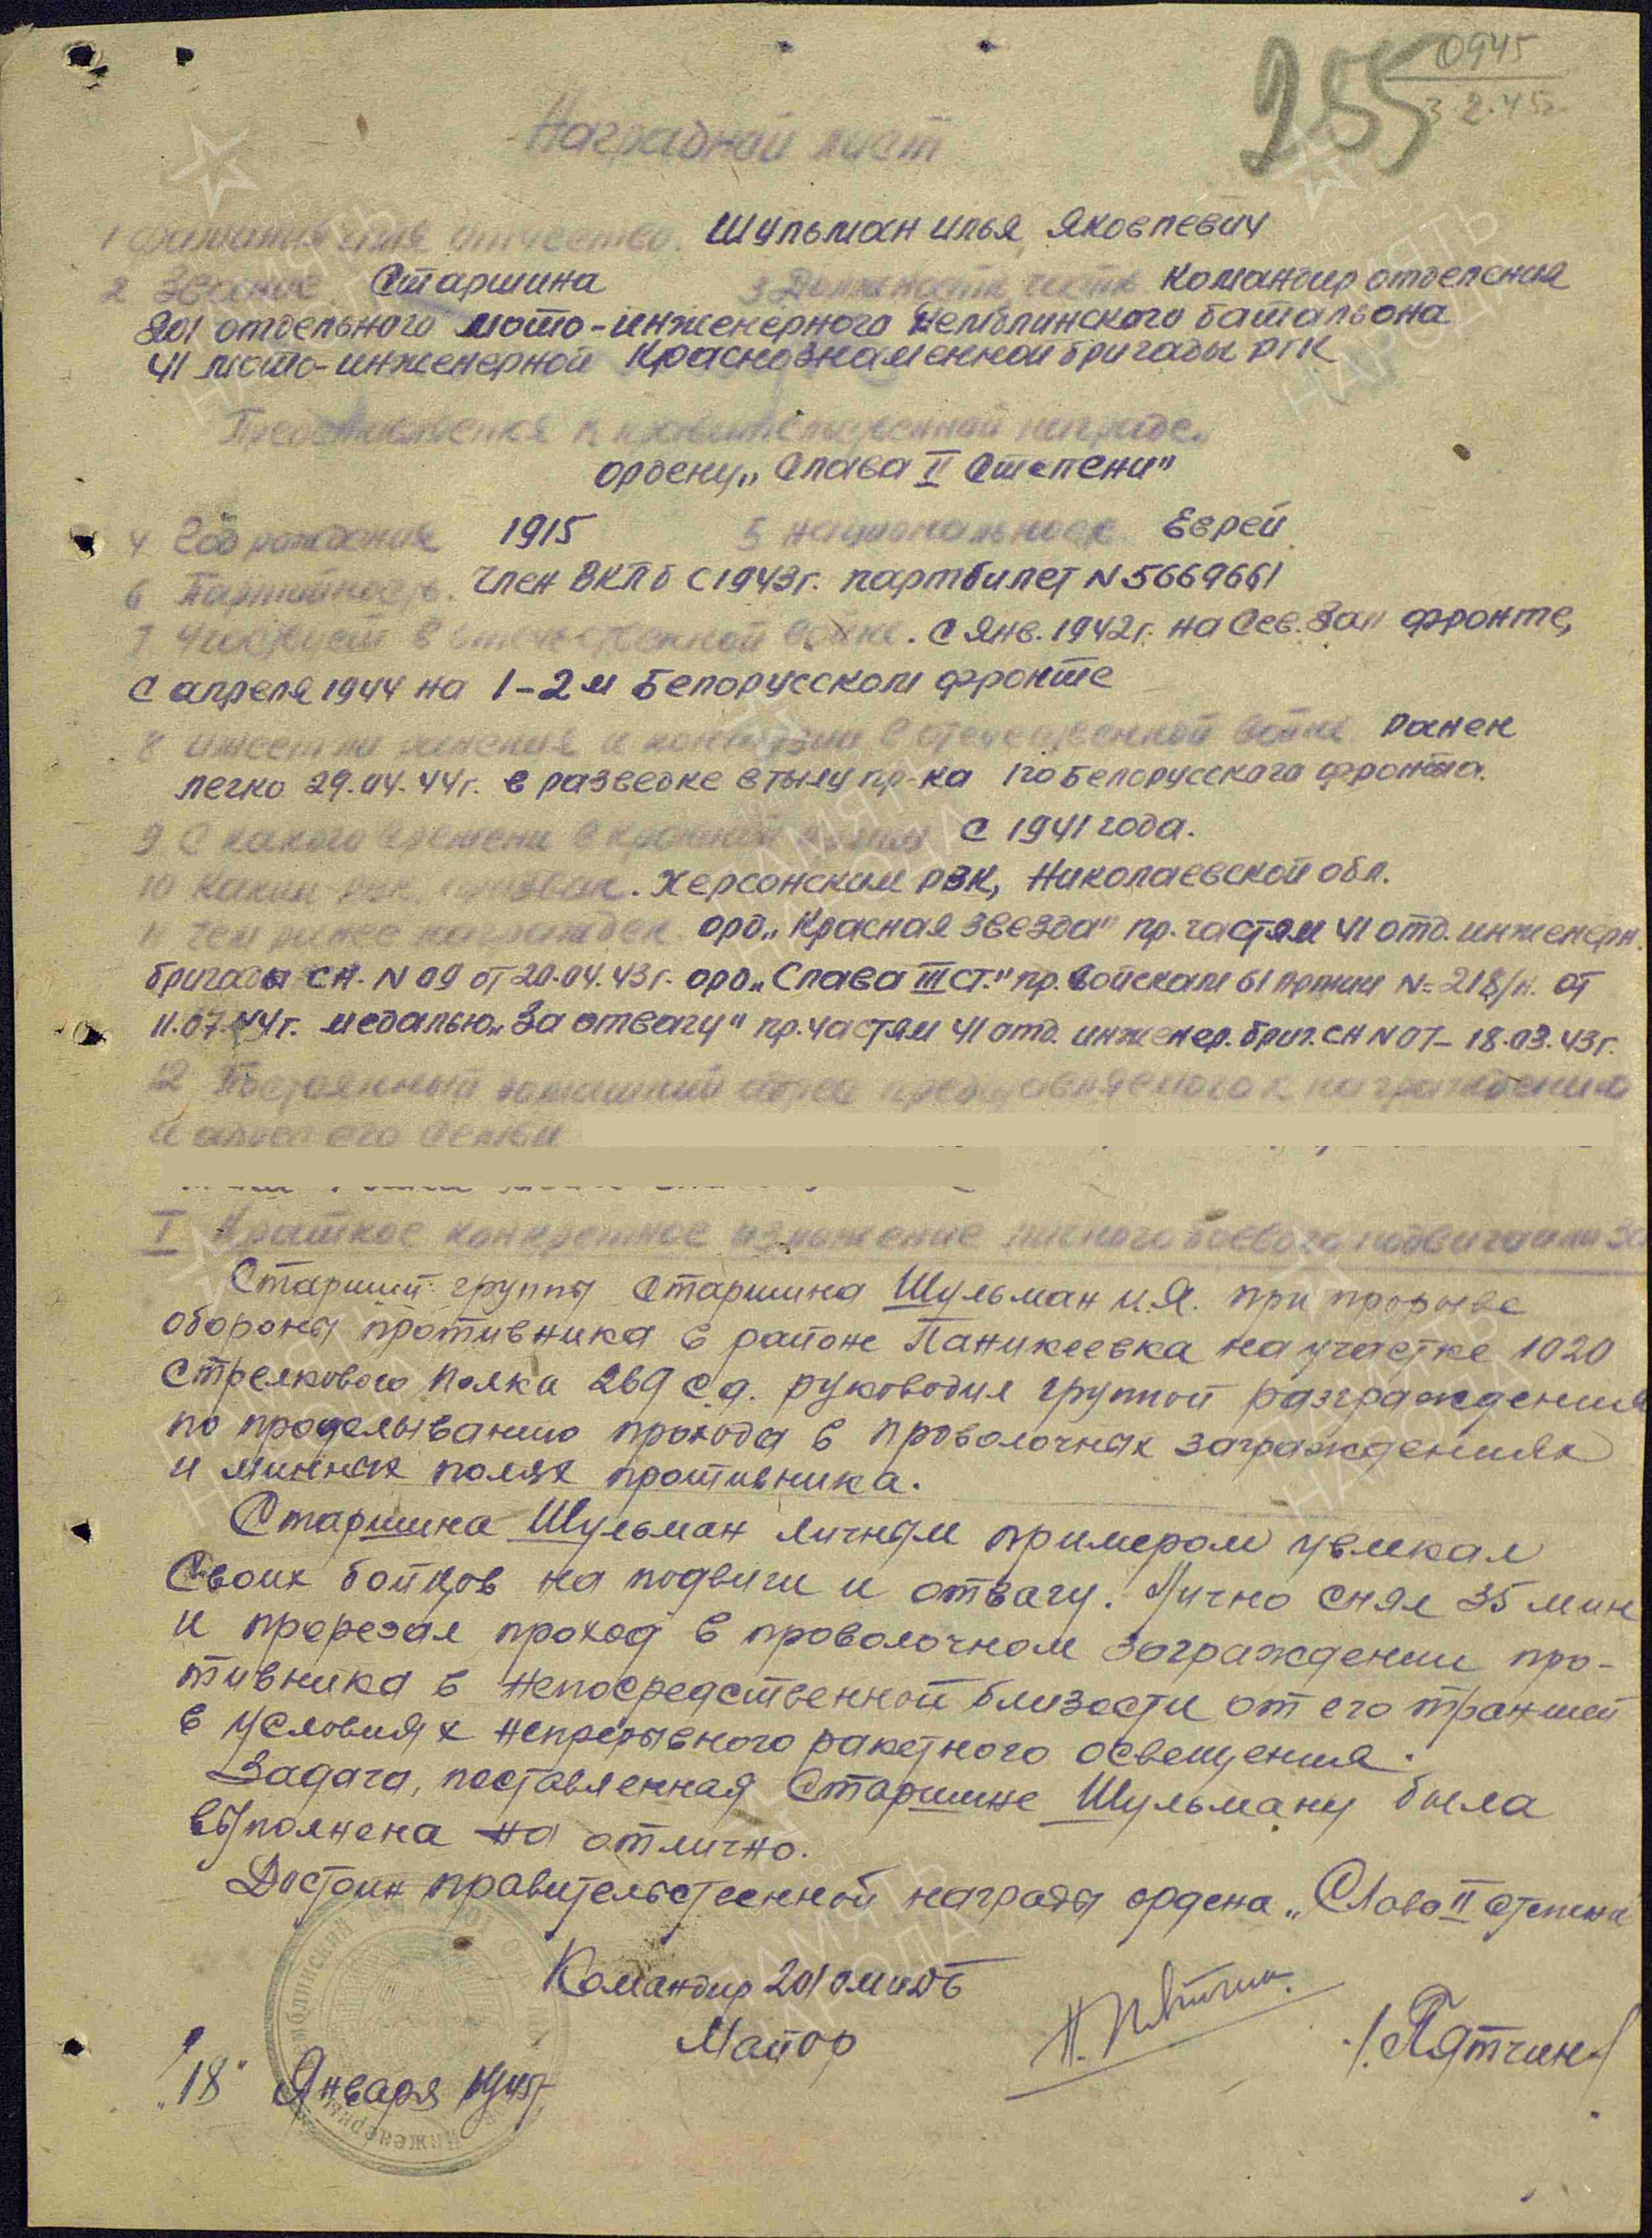 255
0945
3.2.45г.
Наградной лист
1 фамилия имя отчество. Шульман Илья Яковлевич
2 Звание Старшина 3 Должность, часть Командир отделения
201 отдельного мото-инженерного Демблинского батальона
41 мото-инженерной Краснознаменной бригады РГК
Представляется к правительственной награде
ордену „Слава II Степени"
4 Год рождения 1915 5 национальность Еврей
6 Партийность. Член ВКПб с 1943г. партбилет N 5669661
7 Участвует в отечественной войне. С янв. 1942г. на Сев. Зап фронте,
с апреля 1944 на 1-2м Белорусском фронте
8 имеет ли ранения и контузии в отечественной войне Ранен
легко 29.04.44г. в разведке в тылу пр-ка 1го Белорусского фронта.
9 С какого времени в красной армии С 1941 года.
10 Каким рвк призван. Херсонским РВК, Николаевской обл.
11 Чем ранее награжден орд „Красная звезда" пр. частям 41 отд. инженерн.
бригады СН. N 09 от 20.04.43г. орд „Слава III ст." пр. войскам 61 Армии N-218/н. от
11.07.44г. медалью „За отвагу" пр. частям 41 отд. инженер. бриг. СН N 07- 18.03.43г.
12 Постоянный домашний адрес представляемого к награждению
и адрес его семьи
I Краткое конкретное изложение личного боевого подвига или
Старший группы Старшина Шульман И.Я. при прорыве
обороны противника в районе Паникеевка на участке 1020
Стрелкового Полка 269 с.д. руководил группой разграждения
по проделыванию прохода в проволочных заграждениях
и минных полях противника.
Старшина Шульман личным примером увлекал
Своих бойцов на подвиги и отвагу. Лично снял 35 мин
и прорезал проход в проволочном заграждении про-
тивника в непосредственной близости от его траншей
в условиях непрерывного ракетного освещения.
Задача, поставленная Старшине Шульману была
выполнена на отлично.
Достоин правительственной награды ордена „Слава II степени
Командир 201 омидб
Майор /Пятчин/
„18" Января 1945г
ПАМЯТЬ
НАРОДА